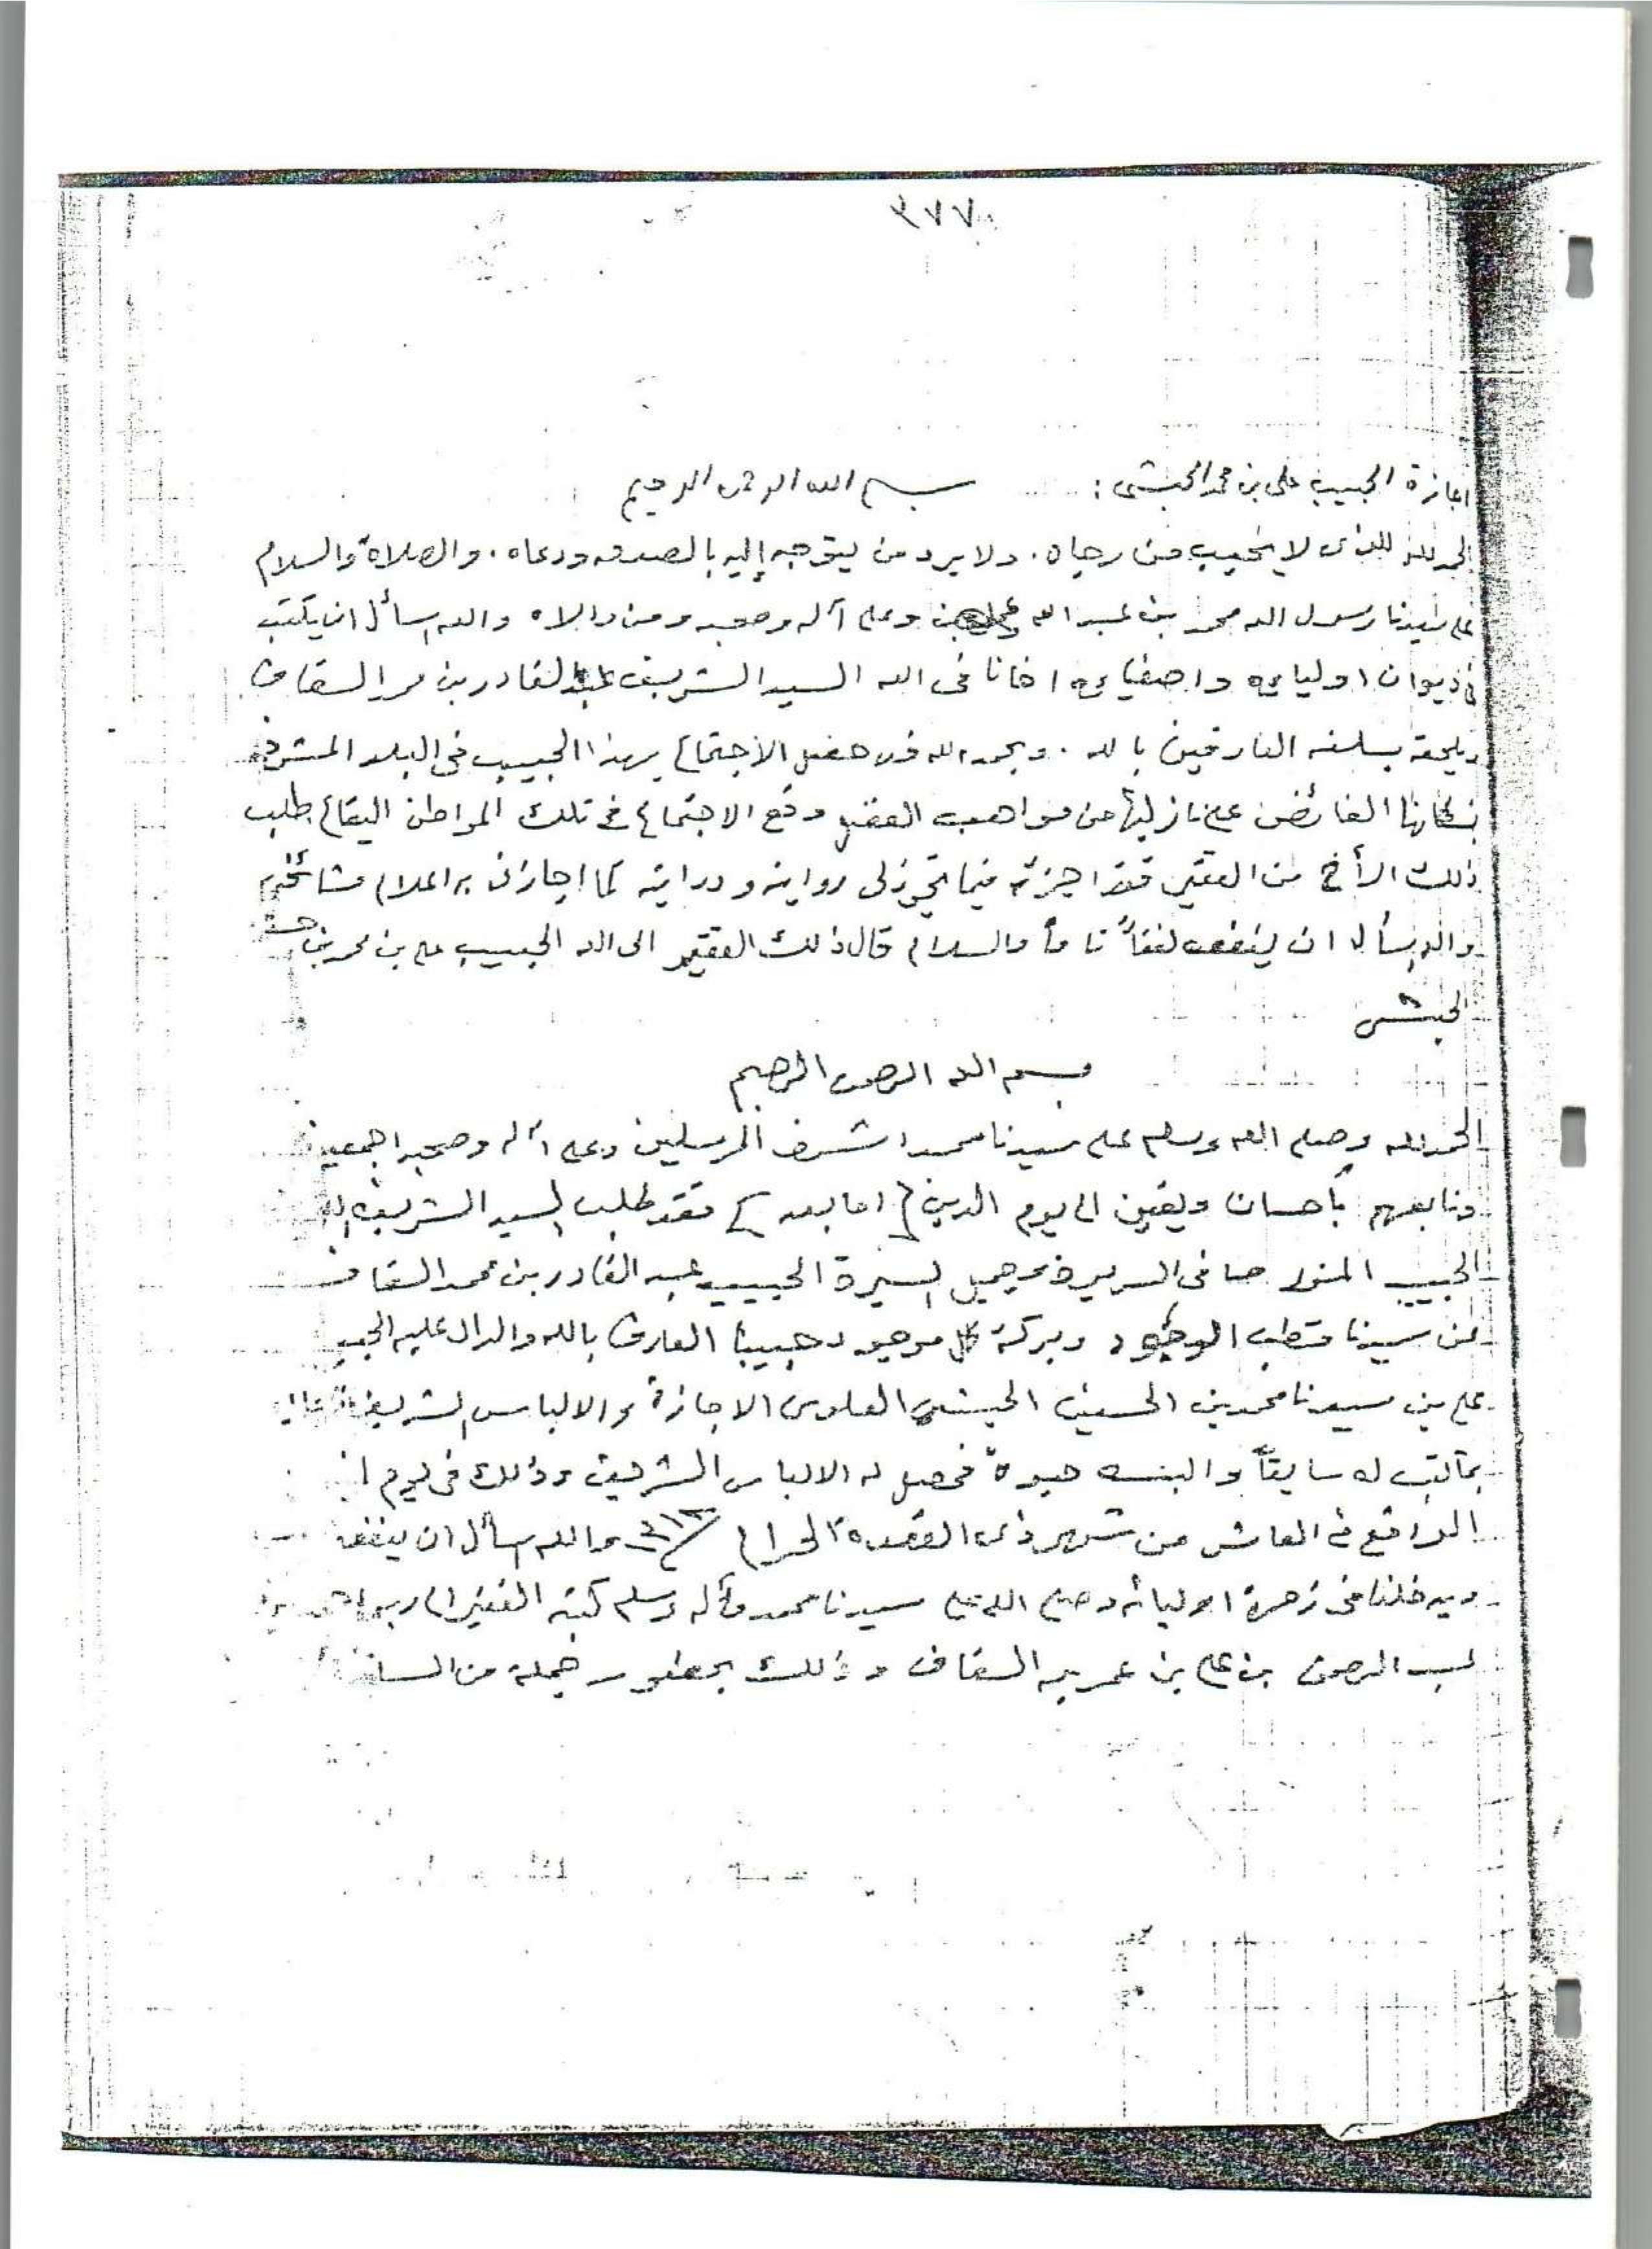 ٣٧٧
اجازة الحبيب علي بن محمد الحبشي : بسم الله الرحمن الرحيم
الحمد لله الذي لا يخيب من رجاه . ولا يرد من يتوجه إليه بالصدق ودعاه . والصلاة والسلام
على سيدنا رسول الله محمد بن عبد الله وعلى آله وصحبه ومن والاه والله اسأل ان يكتب
في ديوان اوليائه واصفيائه اخانا في الله السيد الشريف عبد القادر بن محمد السقاف
ويلحقه بسلفه العارفين بالله . وبحمد الله قد حصل الاجتماع بهذا الحبيب في البلد المشرفة
الفائض على نازليها من مواهب وقع الاجتماع في تلك المواطن البقاع طلب
ذلك الأخ من الفقير فقد اجزته فيما تجوز لي روايته ودرايته كما اجازني به اعلام مشائخي
والله اسأل ان ينفعه نفعاً تاماً والسلام قال ذلك الفقير الى الله الحبيب علي بن محمد بن
الحبشي
بسم الله الرحمن الرحيم
الحمد لله وصلى الله وسلم على سيدنا محمد اشرف المرسلين وعلى آله وصحبه اجمعين
وتابعهم بأحسان ويقين الى يوم الدين { اما بعد } فقد طلب السيد الشريف
الحبيب المنور صافي السريرة وجميل السيرة الحبيب عبد القادر بن محمد السقاف
من سيدنا قطب الوجود وبركة كل موجود حبيبنا العارف بالله والدال عليه الحبيب
علي بن سيدنا محمد بن الحسين الحبشي العلوي الاجازة والالباس الشريف
بما كتب له سابقاً والبسه حبوة فحصل له الالباس الشريف وذلك في يوم
الواقع في العاشر من شهر ذي القعدة الحرام والله اسأل ان ينفعنا
ويدخلنا في زمرة اوليائه وصلى الله على سيدنا محمد وآله وسلم كتبه الفقير الى ربه
عبد الرحمن بن علي بن عمر السقاف وذلك بحضور جملة من